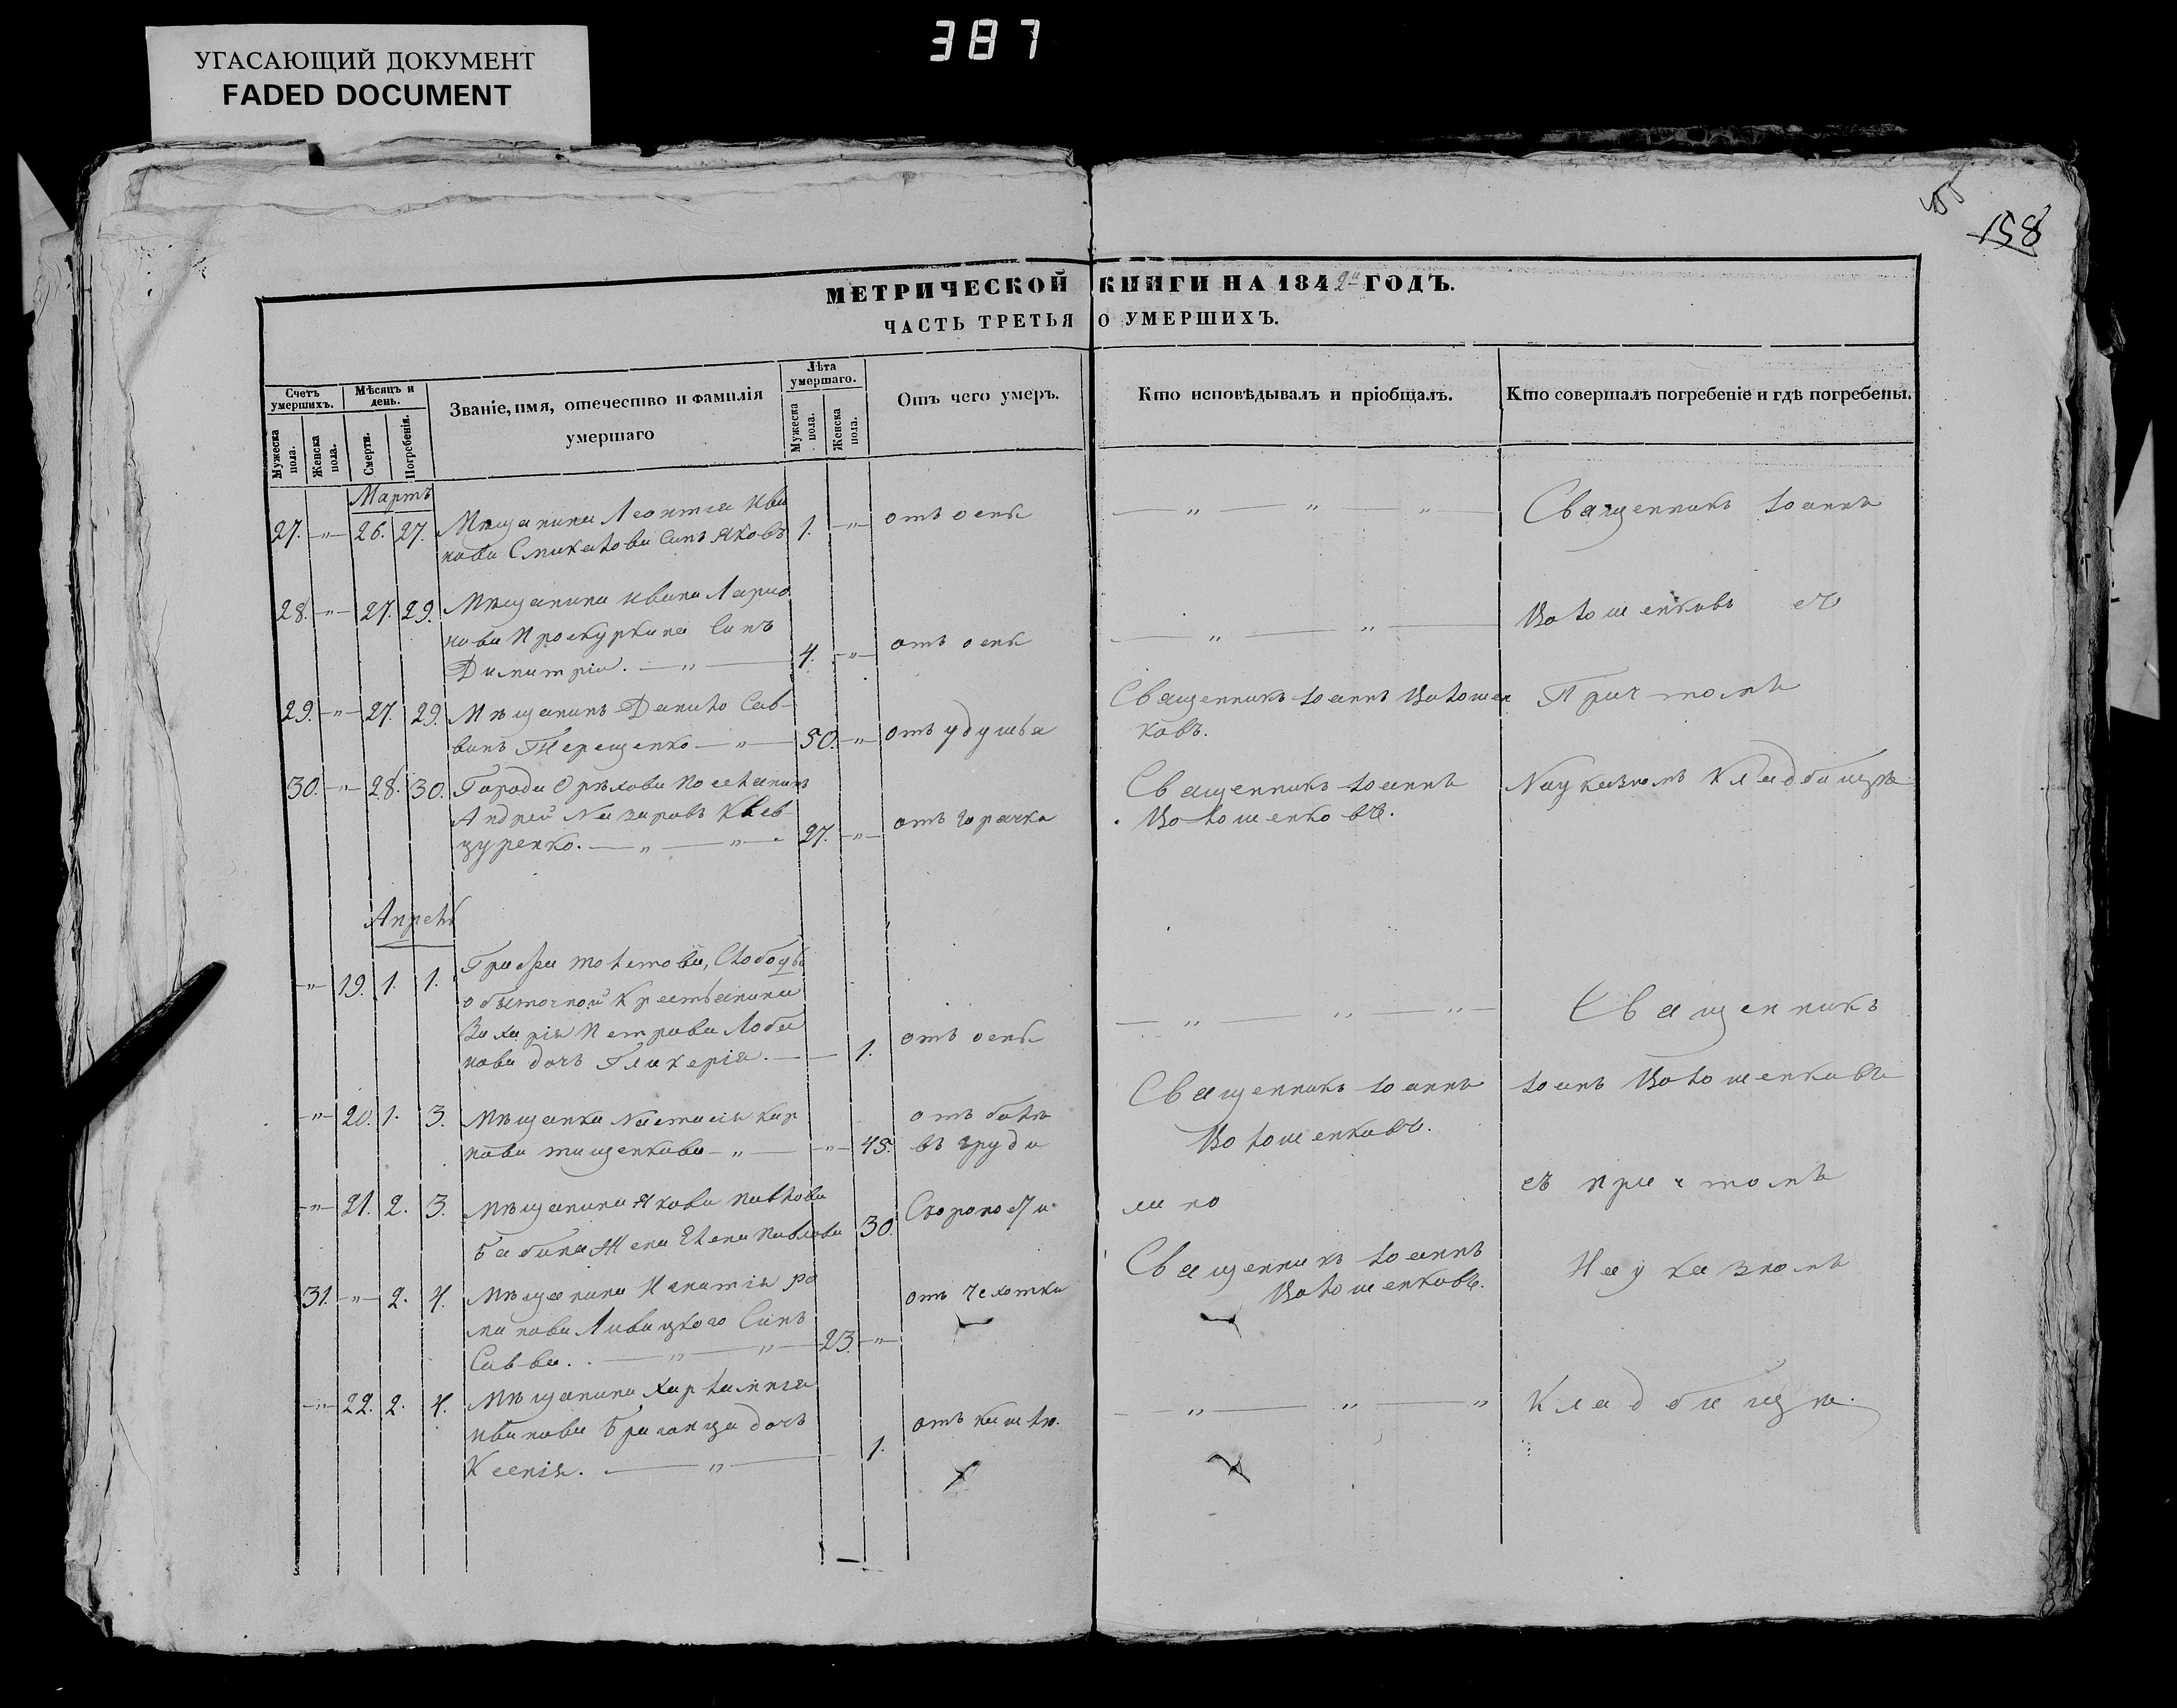 387
УГАСАЮЩИЙ ДОКУМЕНТ
FADED DOCUMENT
158
МЕТРИЧЕСКОЙ КНИГИ НА 1842й ГОДЪ.
ЧАСТЬ ТРЕТЬЯ О УМЕРШИХЪ.
Счетъ умершихъ.
Мужеска пола.
Женска пола.
Мѣсяцъ и день.
Смерти.
Погребенія.
Званіе, имя, отечество и фамилія умершаго
Лѣта умершаго.
Мужеска пола.
Женска пола.
Отъ чего умеръ.
Кто исповѣдывалъ и пріобщалъ.
Кто совершалъ погребеніе и гдѣ погребены.
Мартъ
27. —"— 26. 27. Мѣщанина Леонтія Ива
нова сынъ Яковъ 1. —"— отъ оспы
— " — " — " —
Священникъ Іоаннъ
28. —"— 27. 29. Мѣщанина Ивана Ларио
нова Проскуркина сынъ
Димитрій. — " — 4. —"— отъ оспы
— " — " —
Волошенковъ съ
29. —"— 27. 29. Мѣщанинъ Данило Сав-
винъ Терещенко — " — 50. —"— отъ удушья
Священникъ Іоаннъ Волошен
ковъ.
Причтомъ
30. —"— 28. 30. Города Орѣхова поселянинъ
Андрей Назаровъ
цуренко. — " — " — 27. —"— отъ горячки
Священникъ Іоаннъ
Волошенковъ.
На указномъ кладбищѣ
Апрель
—"— 19. 1. 1. Графа Слободы
обыточной крестьянина
Захарія Петрова Лоба
нова дочь Гликерія. — — 1. отъ оспы
— " — " — " —
Священникъ
—"— 20. 1. 3. Мѣщанка Настасія Кар
пова тищенкова — " — —"— 45. отъ боли
въ груди
Священникъ Іоаннъ
Волошенковъ.
Іоанъ Волошенковъ
—"— 21. 2. 3. Мѣщанина Якова Павлова
Бабина жена Елена Павлова 30. Скоропости
жно
съ причтомъ
31. —"— 2. 4. Мѣщанина Игнатія Ро
манова Ливицкого сынъ
Савва. — " — " — 23. —"— отъ чехотки
Священникъ Іоаннъ
Волошенковъ.
На указномъ
—"— 22. 2. 4. Мѣщанина Харлампія
Иванова Браганца дочь
Ксенія. — " — 1. отъ кашлю.
— " — " — "
Кладбищѣ.